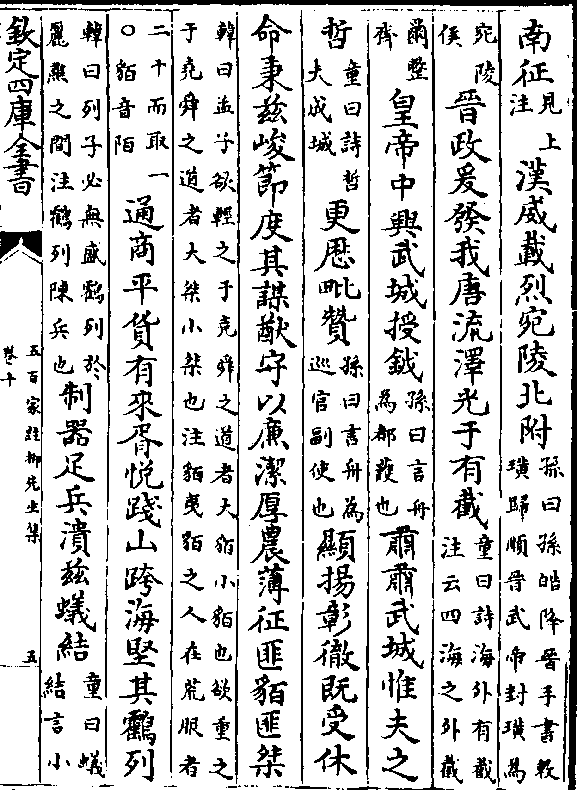 南征見上注漢威載烈宛陵北附孫曰孫皓降晉手書敕璜歸順晉武帝封璜為
宛陵侯晉政爰發我唐流澤光于有截童曰詩海外有截注云四海之外截
爾整齊皇帝中興武城授鉞孫曰言舟為都護也肅肅武城惟夫之
哲童曰詩哲夫成城更歷毗贊孫曰言舟為巡官副使也顯揚彰徹既受休
命秉茲峻節度其謀猷守以廉潔厚農薄征匪貊匪桀
韓曰孟子欲輕之于堯舜之道者大貊小貊也欲重之于堯舜之道者大桀小桀也注貊夷貊之人在荒服者
二十而取一○貊音陌通商平貨有來胥悅踐山跨海堅其鸛列
韓曰列子必無盛鶴列於麗譙之間注鶴列陳兵也制器足兵潰茲蟻結童曰蟻結言小
欽定四庫全書
五百家註柳先生集
卷十
五